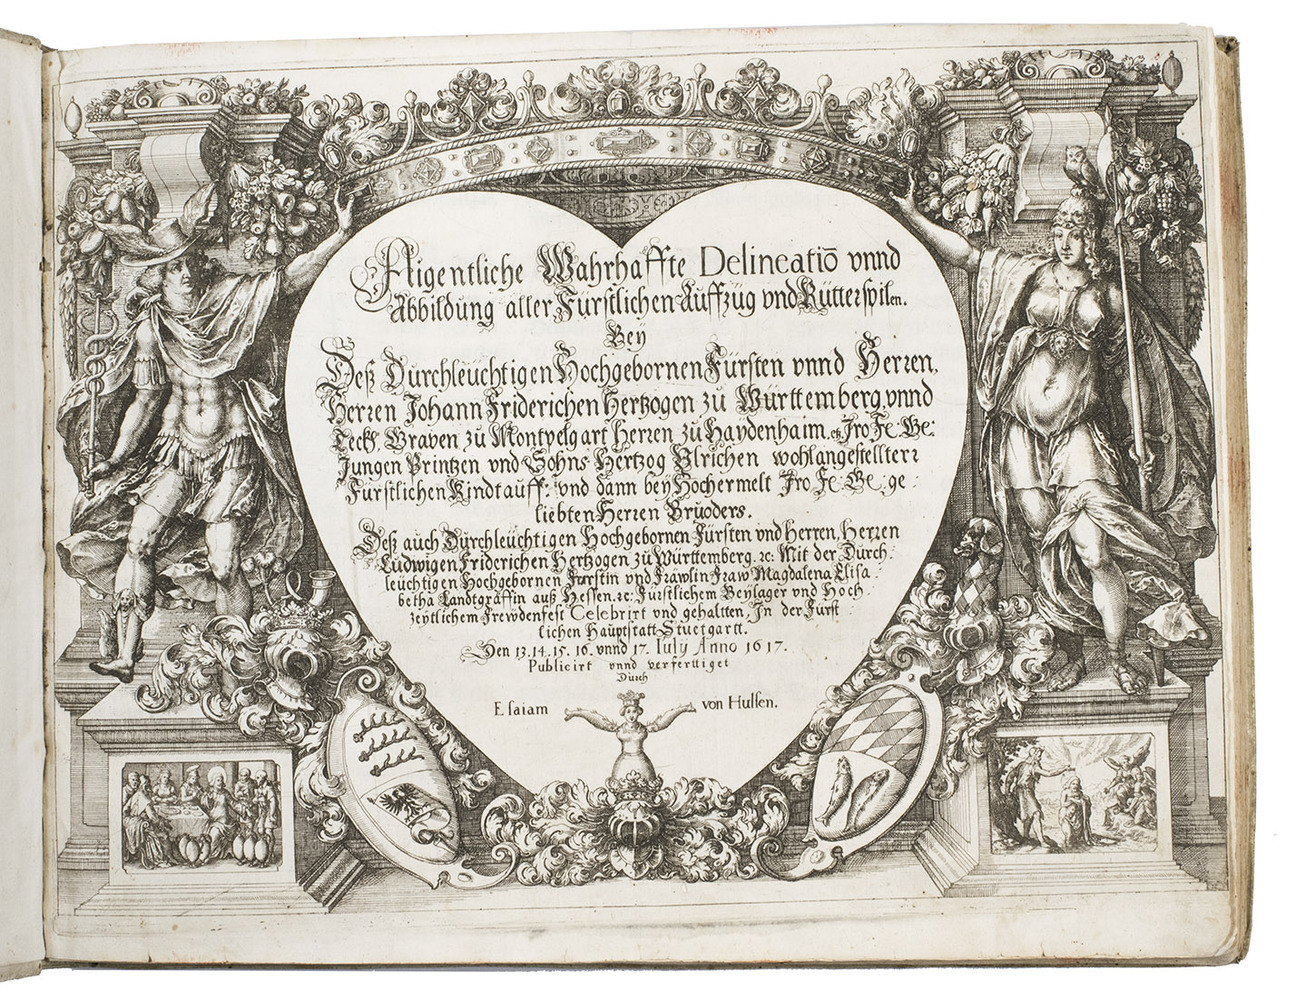 Aigentliche Wahrhaffte Delineatiō vnnd
Abbildung aller Fürstlichen Auffzüg vnd Rütterspilen.
Bey
Deß Durchleüchtigen Hochgebornen Fürsten vnnd Herren,
Herren Johann Friderichen Hertzogen zü Württemberg, vnnd
Teckh, Graven zü Montpelgart Herren zü Haydenhaim. etz Jro Fe. Ge:
Jungen Printzen vnd Sohns Hertzog Vlrichen wohlangestellter
Fürstlichen Kindtauff: vnd dann bey Hochermelt Jro Fe: Ge: ge:
liebten Herren Brüoders.
Deß auch Dürchleüchtigen Hochgebornen Fürsten vnd Herren, Herren
Ludwigen Friderichen Hertzogen zü Württemberg. ꝛc: Mit der Dürch:
leüchtigen Hochgebornen Fürstin vnd Fräwlin Fraw Magdalena Elisa:
betha Landtgräffin auß Hessen. ꝛc: Fürstlichem Beylager vnd Hoch
zeÿtlichem Frewdenfest Celebrirt vnd gehaltten, Jn der Fürst
lichen Haüptstatt Stuetgartt.
Den 13. 14. 15. 16. vnnd 17. July Anno 1617.
Publicirt vnnd verferttiget
Dürch
Esaiam von Hulsen.